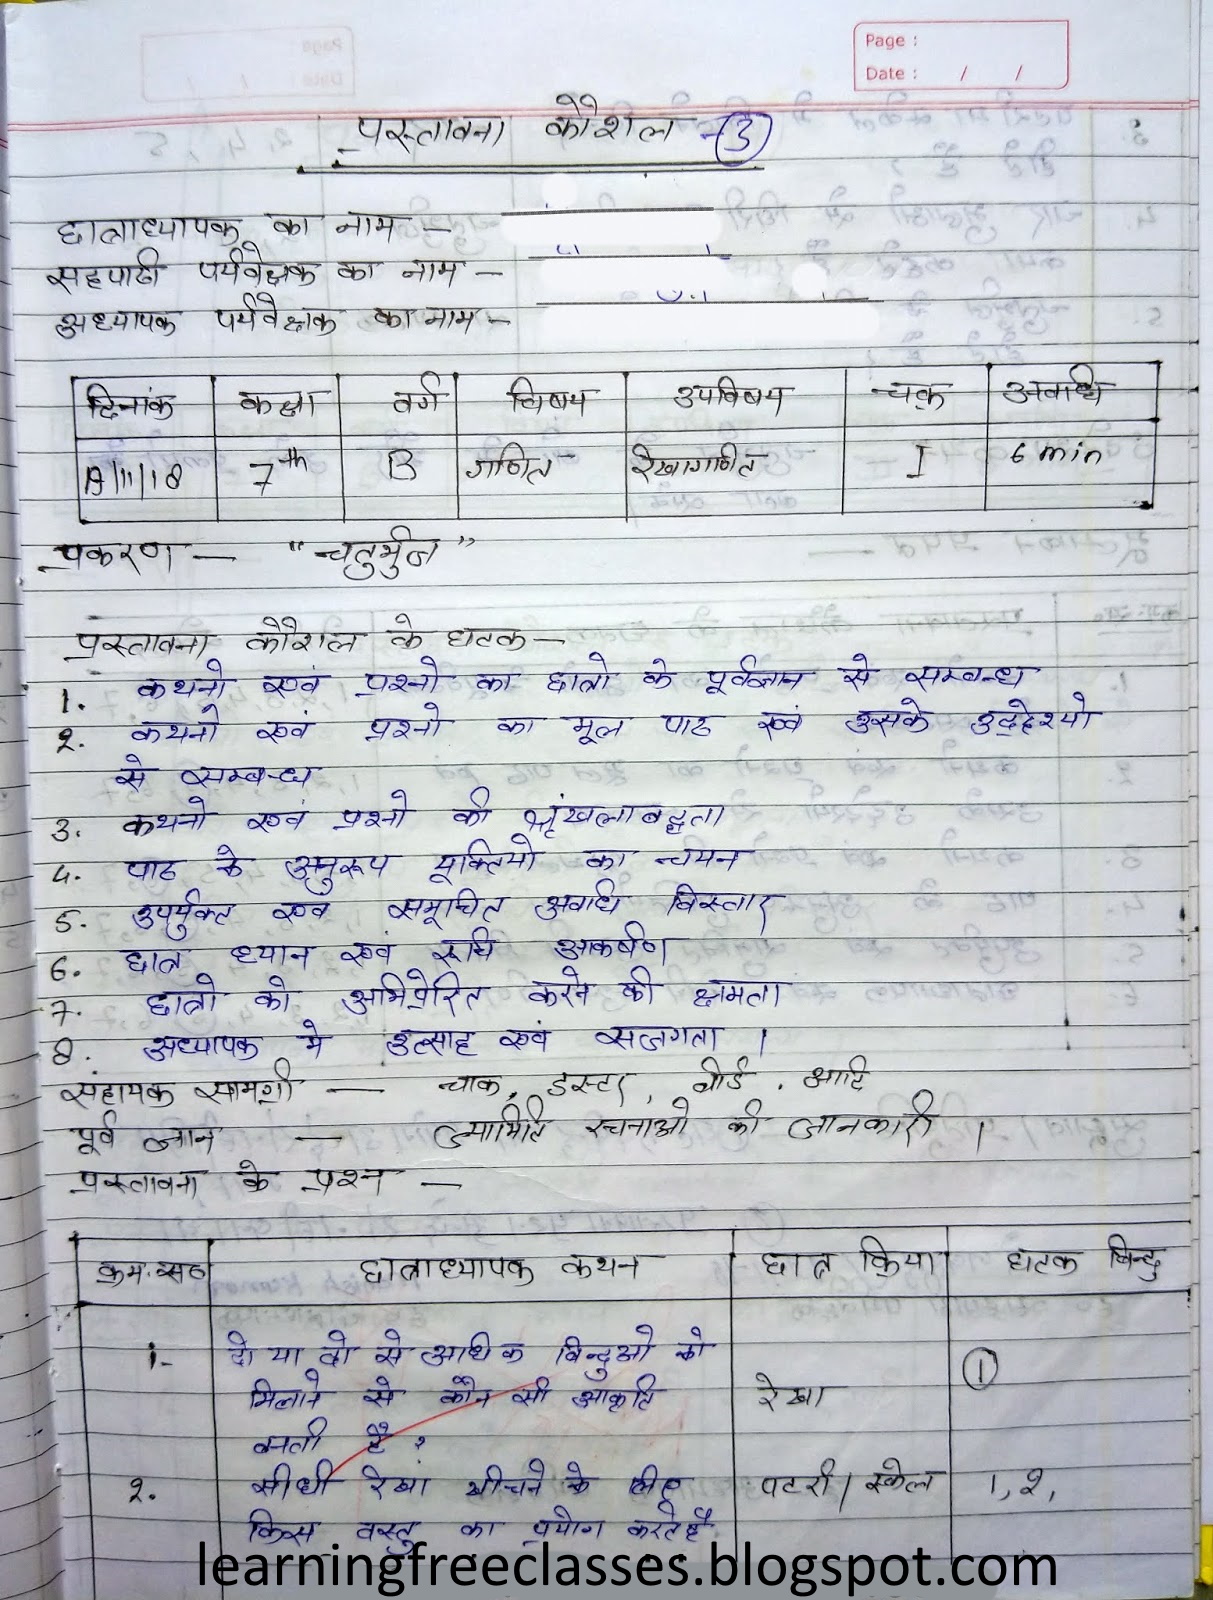 Page :
Date : / /
प्रस्तावना कौशल -③
छात्राध्यापक का नाम -
सहपाठी पर्यवेक्षक का नाम -
अध्यापक पर्यवेक्षक का नाम -
दिनांक कक्षा वर्ग विषय उपविषय चक्र अवधि
/11/18 7th B गणित रेखागणित I 6 min
प्रकरण — "चतुर्भुज"
प्रस्तावना कौशल के घटक -
1. कथनो एवं प्रश्नो का छात्रो के पूर्वज्ञान से सम्बन्ध
2. कथनो एवं प्रश्नो का मूल पाठ एवं उसके उद्देश्यो
से सम्बन्ध
3. कथनो एवं प्रश्नो की श्रृंखलाबद्धता
4. पाठ के अनुरूप यूक्तियो का चयन
5. उपर्युक्त एवं समूचित अवधि विस्तार
6. छात्र ध्यान एवं रूचि आकर्षण
7. छात्रो को अभिप्रेरित करने की क्षमता
8. अध्यापक मे उत्साह एवं सजगता ।
सहायक सामग्री — चाक, डस्टर, बोर्ड, आदि
पूर्व ज्ञान — ज्यामिति रचनाओ की जानकारी ।
प्रस्तावना के प्रश्न -
क्रम. सं० छात्राध्यापक कथन छात्र क्रिया घटक बिन्दु
1- दो या दो से अधिक बिन्दुओ को
मिलाने से कौन सी आकृति रेखा ①
बनती है ?
2. सीधी रेखा खीचने के लिए पटरी / स्केल 1, 2,
किस वस्तु का प्रयोग करते है
learningfreeclasses.blogspot.com